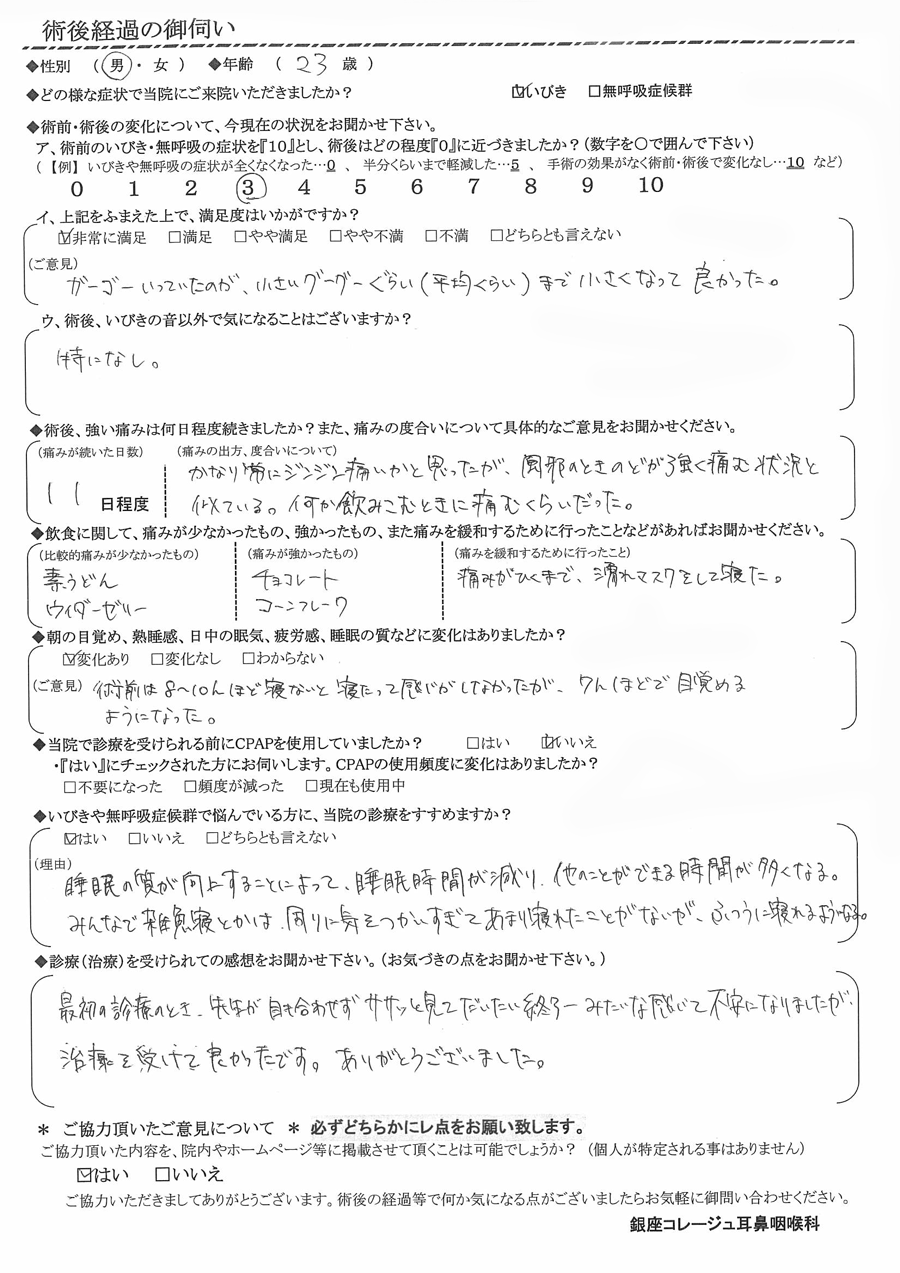 術後経過の御伺い
◆性別 (男・女) ◆年齢 (23歳)
◆どの様な症状で当院にご来院いただきましたか? ☑いびき □無呼吸症候群
◆術前・術後の変化について、今現在の状況をお聞かせ下さい。
ア、術前のいびき・無呼吸の症状を『10』とし、術後はどの程度『0』に近づきましたか?(数字を〇で囲んで下さい)
(【例】いびきや無呼吸の症状が全くなくなった…0 、 半分くらいまで軽減した…5 、 手術の効果がなく術前・術後で変化なし…10 など)
0 1 2 3 4 5 6 7 8 9 10
イ、上記をふまえた上で、満足度はいかがですか?
☑非常に満足 □満足 □やや満足 □やや不満 □不満 □どちらとも言えない
(ご意見)
ガーゴーいっていたのが、小さいグーグーぐらい(平均くらい)まで小さくなって良かった。
ウ、術後、いびきの音以外で気になることはございますか?
特になし。
◆術後、強い痛みは何日程度続きましたか?また、痛みの度合いについて具体的なご意見をお聞かせください。
(痛みが続いた日数) (痛みの出方、度合いについて)
かなり常にジンジン痛いかと思ったが、風邪のときのどが強く痛む状況と
11日程度 似ている。何か飲みこむときに痛むくらいだった。
◆飲食に関して、痛みが少なかったもの、強かったもの、また痛みを緩和するために行ったことなどがあればお聞かせください。
(比較的痛みが少なかったもの) (痛みが強かったもの) (痛みを緩和するために行ったこと)
素うどん チョコレート 痛みがひくまで、濡れマスクをして寝た。
ウイダーゼリー コーンフレーク
◆朝の目覚め、熟睡感、日中の眠気、疲労感、睡眠の質などに変化はありましたか?
☑変化あり □変化なし □わからない
(ご意見) 術前は8〜10hほど寝ないと寝たって感じがしなかったが、7hほどで目覚める
ようになった。
◆当院で診療を受けられる前にCPAPを使用していましたか? □はい ☑いいえ
・『はい』にチェックされた方にお伺いします。CPAPの使用頻度に変化はありましたか?
□不要になった □頻度が減った □現在も使用中
◆いびきや無呼吸症候群で悩んでいる方に、当院の診療をすすめますか?
☑はい □いいえ □どちらとも言えない
(理由)
睡眠の質が向上することによって、睡眠時間が減り、他のことができる時間が多くなる。
みんなで雑魚寝とかは、周りに気をつかいすぎてあまり寝れたことがないが、ふつうに寝れるようになる。
◆診療(治療)を受けられての感想をお聞かせ下さい。(お気づきの点をお聞かせ下さい。)
最初の診療のとき、先生が目も合わせずササッと見てだいたい終ろーみたいな感じで不安になりましたが、
治療を受けて良かったです。ありがとうございました。
＊ ご協力頂いたご意見について ＊ 必ずどちらかにレ点をお願い致します。
ご協力頂いた内容を、院内やホームページ等に掲載させて頂くことは可能でしょうか? (個人が特定される事はありません)
☑はい □いいえ
ご協力いただきましてありがとうございます。術後の経過等で何か気になる点がございましたらお気軽に御問い合わせください。
銀座コレージュ耳鼻咽喉科